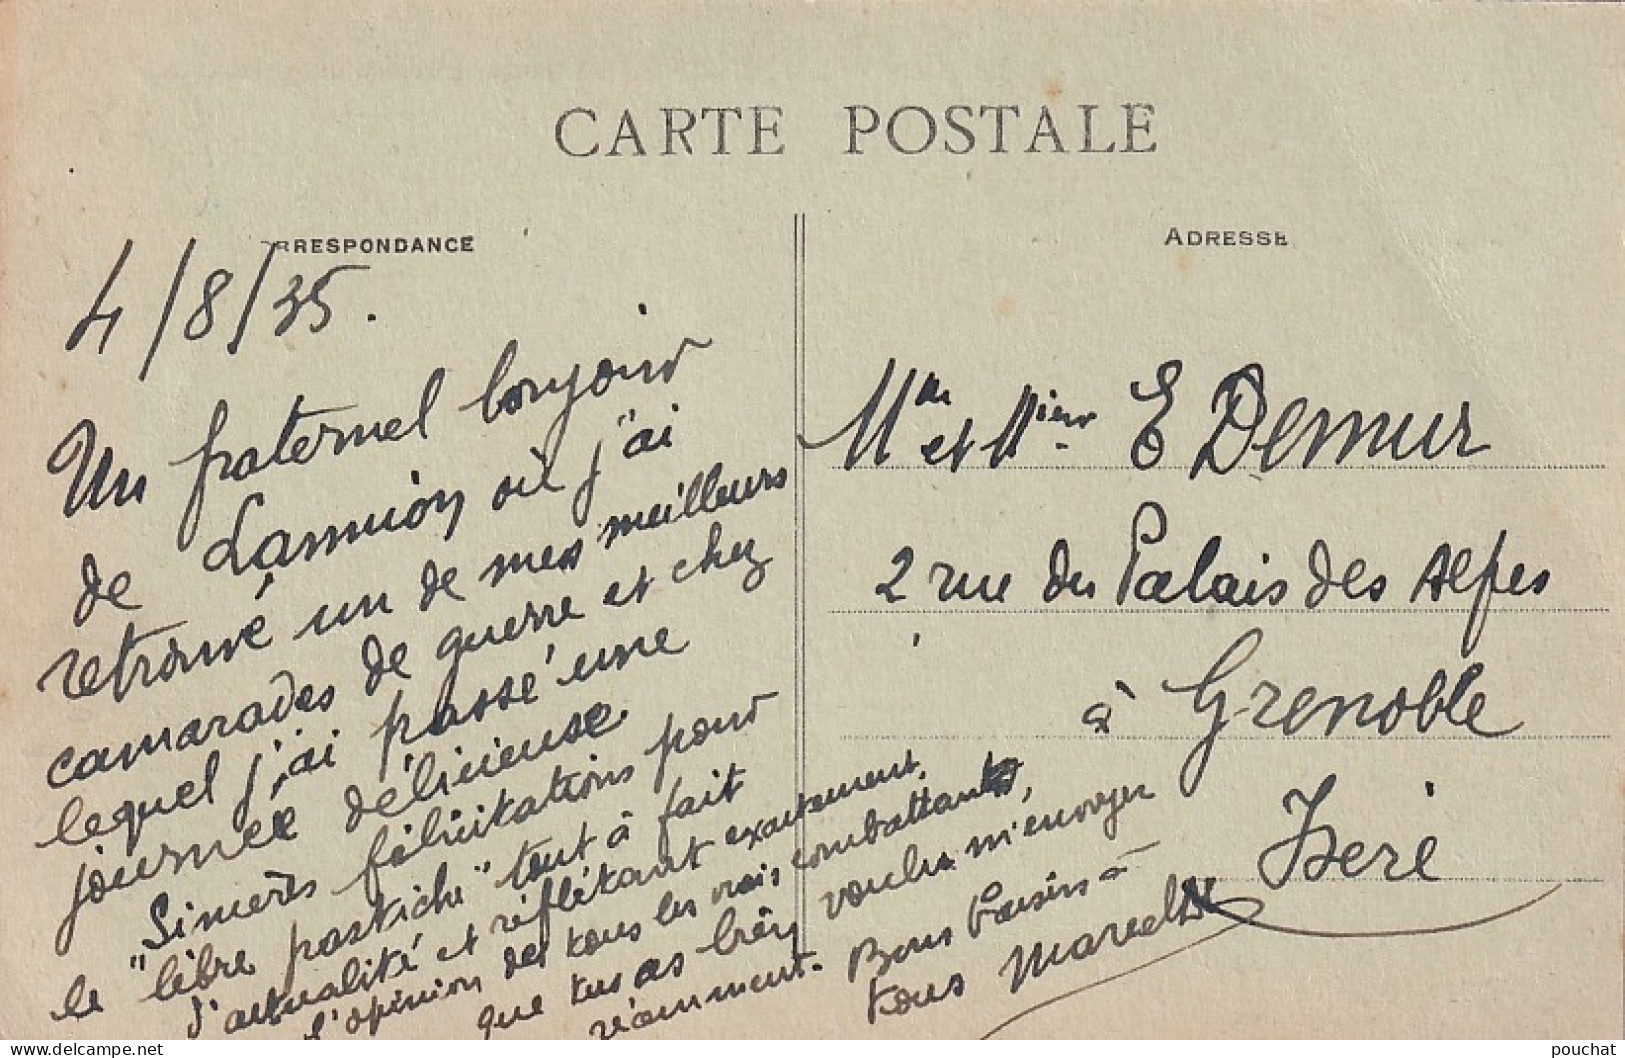 CARTE POSTALE
RRESPONDANCE
ADRESSE
4/8/35.
Un fraternel bonjour
de Lannion où j'ai
retrouvé un de mes meilleurs
camarades de guerre et chez
lequel j'ai passé une
journée délicieuse
Sincères félicitations pour
le "libre postiche" tout à fait
d'actualité et réflétant exactement
l'opinion de tous les vrais combattants,
que tu as bien voulu m'envoyer
récemment. Bons baisers à
tous Marcel
Mme et M E Demur
2 rue du Palais des Alpes
à Grenoble
Isère
pouchat